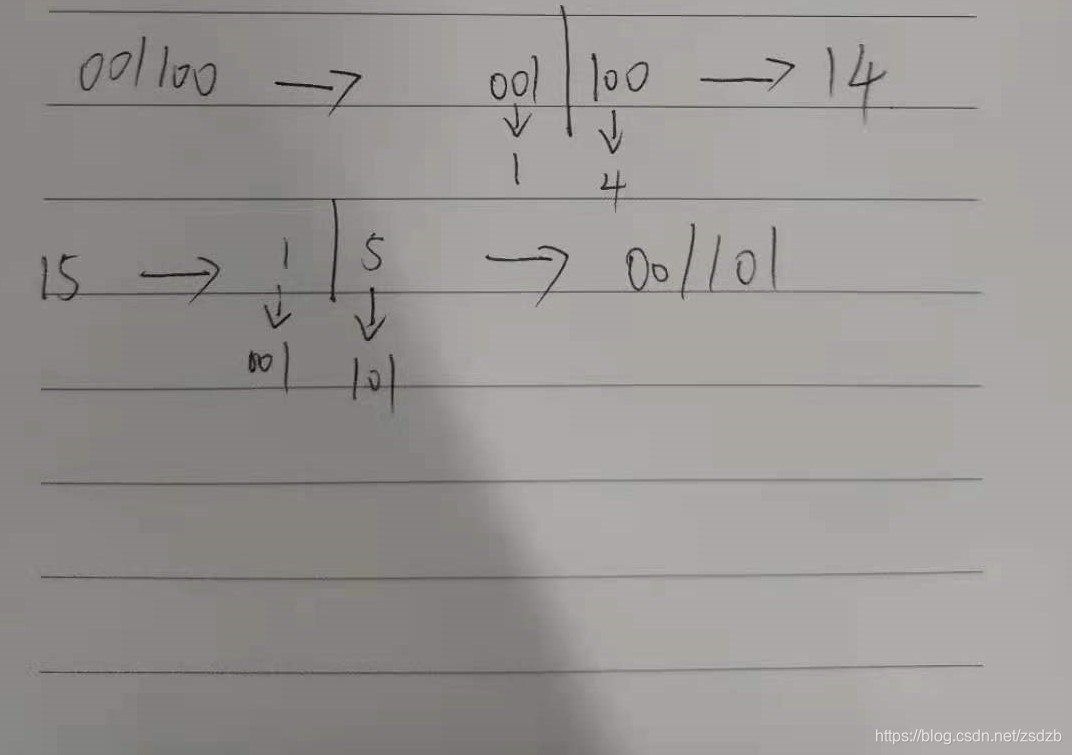 001100 → 001 | 100 → 14
↓ ↓
1 4
15 → 1 | 5 → 001101
↓ ↓
001 101
https://blog.csdn.net/zsdzb